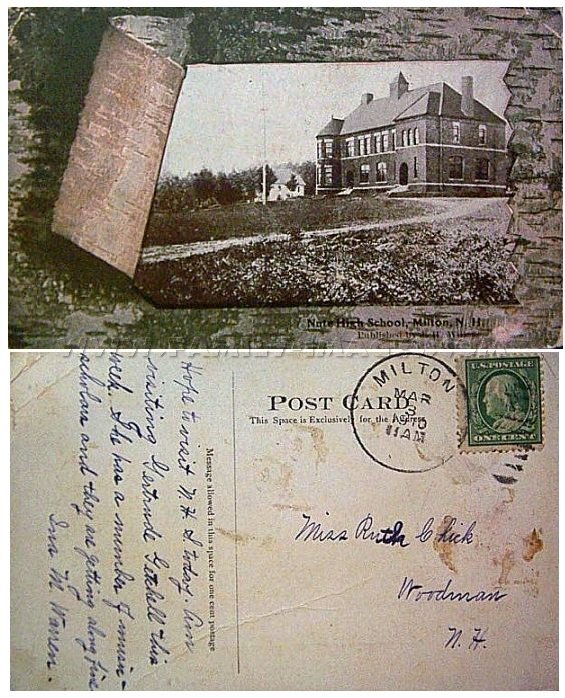 Nute High School, Milton, N. H.
Published by
POST CARD
This Space is Exclusively for the Address
Message allowed in this space for one cent postage
MILTON
MAR
3
11 AM
U.S. POSTAGE
ONE CENT
Hope to visit N. H. S. today. Am
visiting Gertrude Getchell this
week. She has a number of music
scholars and they are getting along fine
Ina M. Warren.
Miss Ruth Chick
Woodman
N. H.